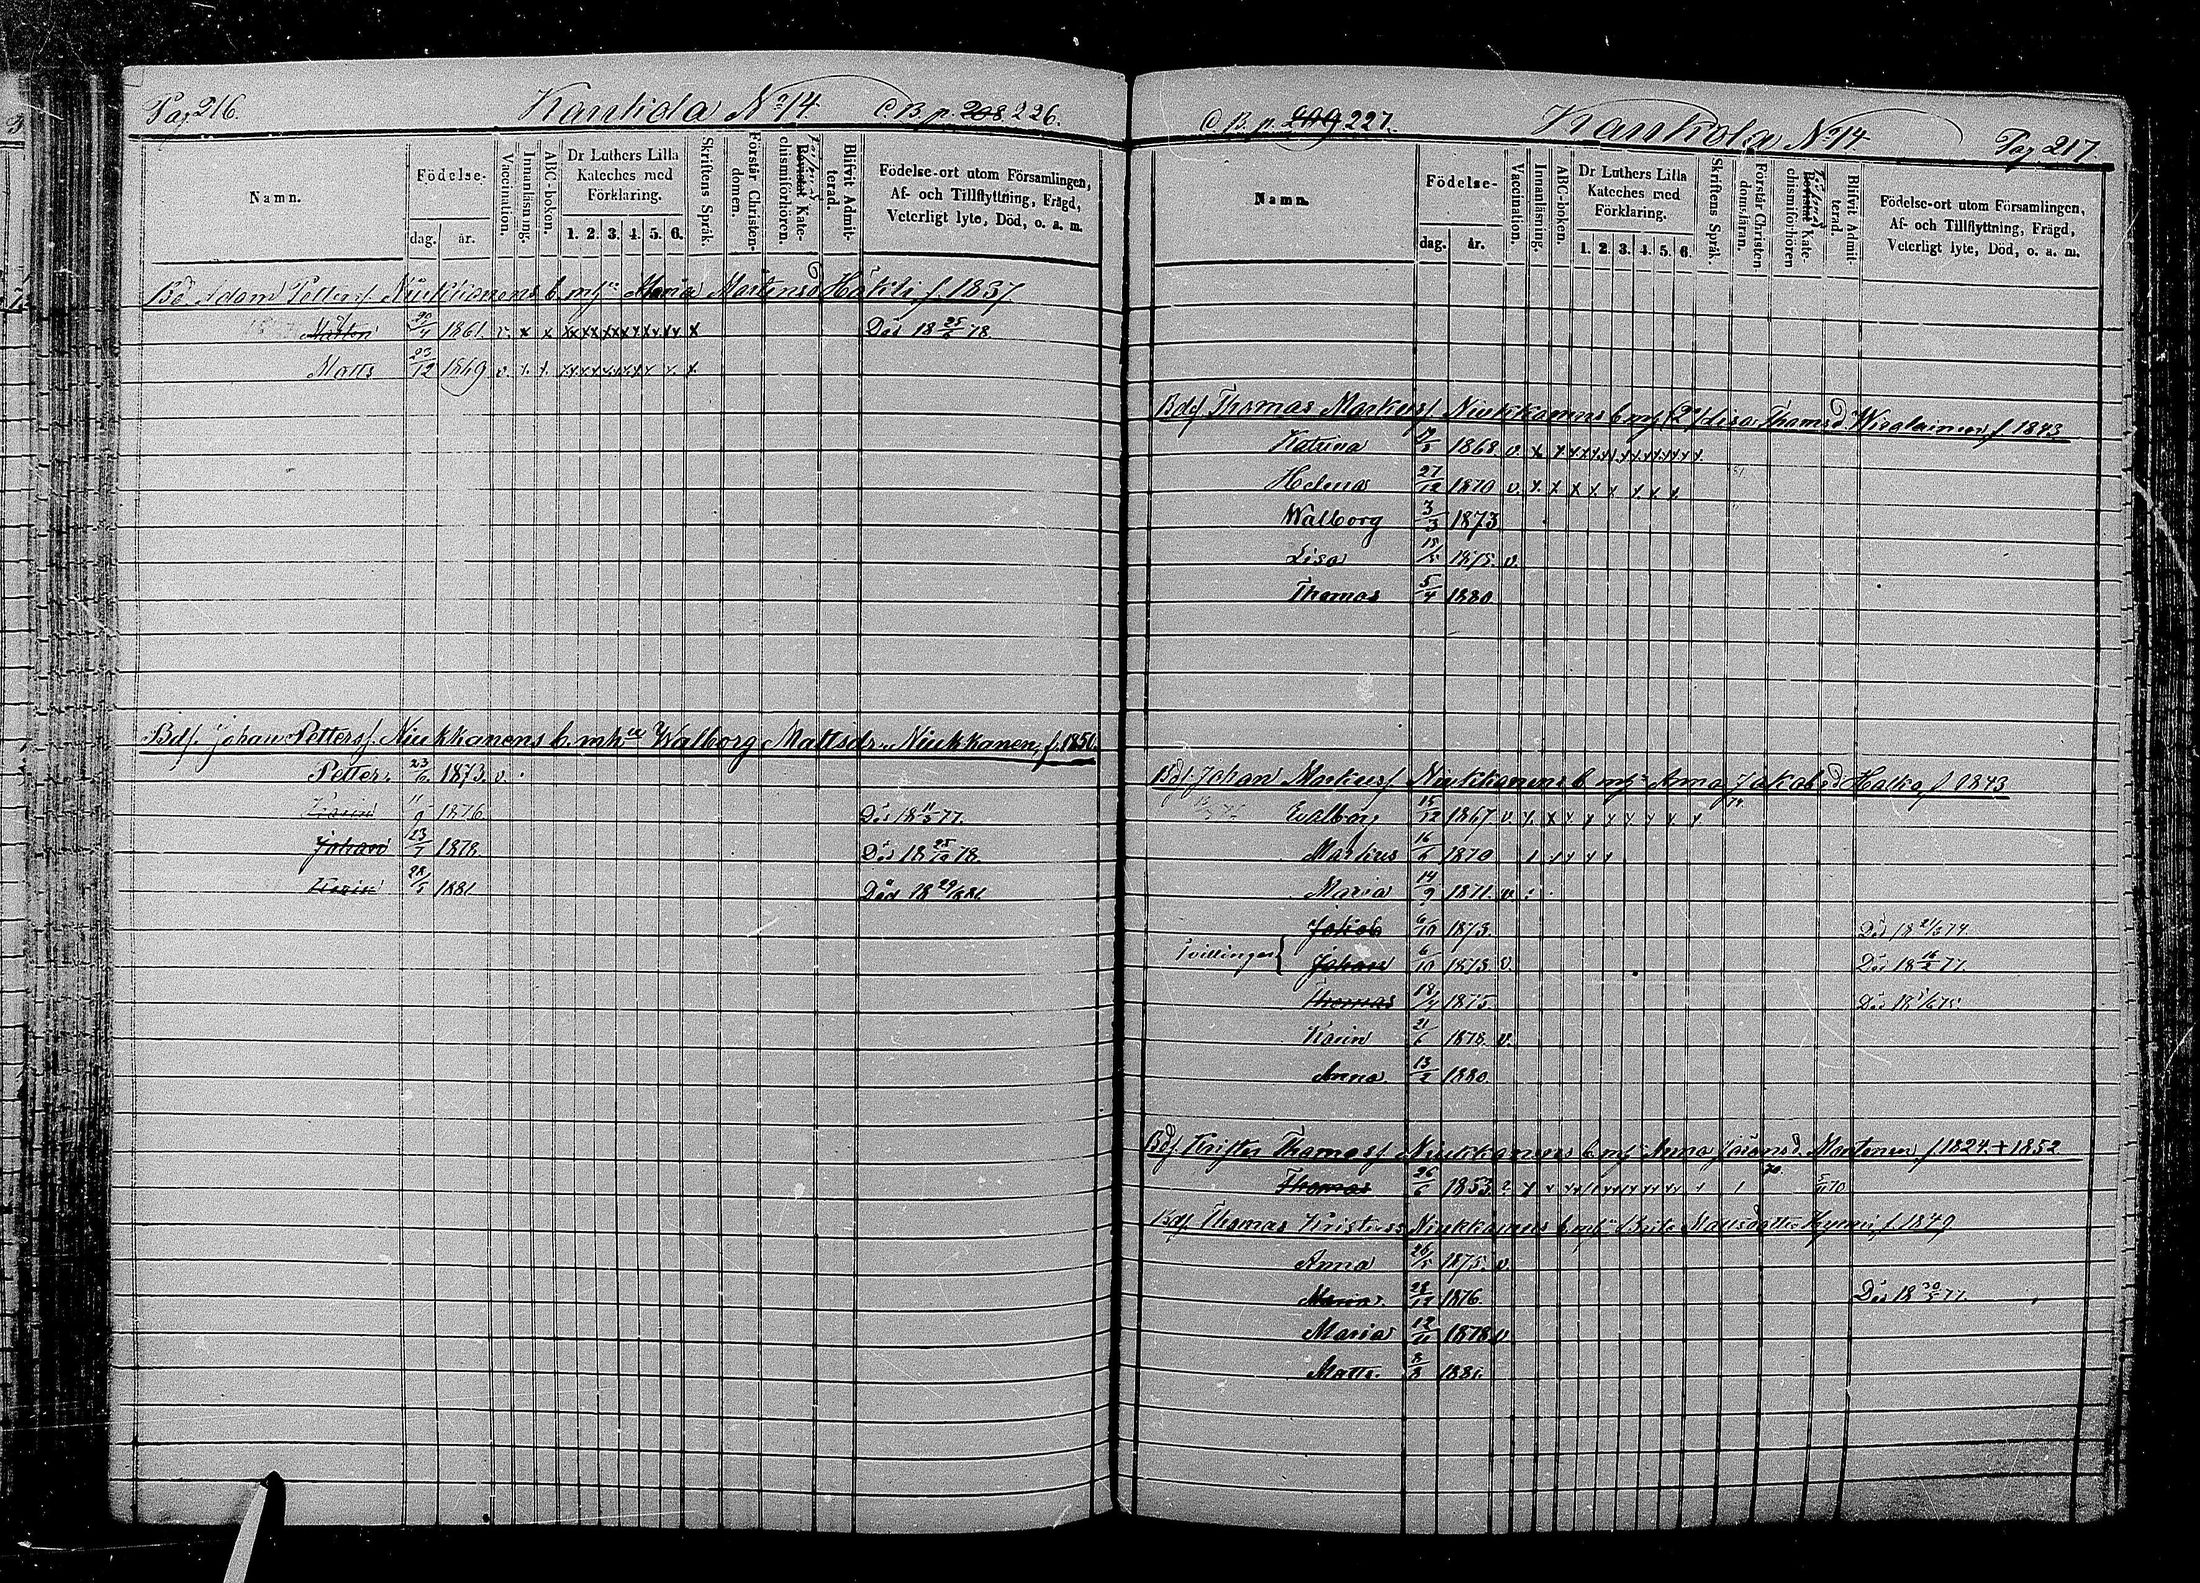 Pag 216. Kankola № 14. C.B.p. 208 226.
Namn.
Födelse-
dag. år.
Vaccination.
Innanläsning.
ABC-boken.
Dr Luthers Lilla Kateches med Förklaring.
1. 2. 3. 4. 5. 6.
Skriftens Språk.
Förstår Christendomen.
Bevistat Katechismiförhören.
Blifvit Admitterad.
Födelse-ort utom Församlingen, Af- och Tillflyttning, Frägd, Veterligt lyte, Död, o. a. m.
Bd Adam Petterss Niukkanens b. m h. Maria Mårtensd Häkli f. 1837
1861. v. x x xx xx xx x x x x x Död 18 25/6 78.
Matts 25/12 1869 v. x x
Bds. Johan Petterss. Niukkanens b. m h. Walborg Mattsdr. Niukkanen, f. 1850.
Petter. 23/6 1873. v.
Karin 11/9 1876 Död 18 11/5 77.
Johan 23/7 1878. Död 18 25/12 78.
Karin 28/5 1881 Död 18 29/8 81.
C.B.p. 209 227. Kankola № 14 Pag. 217.
Namn.
Födelse-
dag. år.
Vaccination.
Innanläsning.
ABC-boken.
Dr Luthers Lilla Kateches med Förklaring.
1. 2. 3. 4. 5. 6.
Skriftens Språk.
Förstår Christendomsläran.
Bevistat Katechismiförhören
Blifvit Admitterad.
Födelse-ort utom Församlingen, Af- och Tillflyttning, Frägd, Veterligt lyte, Död, o. a. m.
Bds Thomas Markuss Niukkanens b. m h. (2) Lisa Thomasd f. 1843
Katrina 1868 v. x x x x x x x x x
Helena 27/12 1870 v. x x x x x x x x
Walborg 3/3 1873
Lisa 1875. v.
Thomas 5/4 1880.
Bds. Johan Markuss. Niukkanens b m h Anna Jakobsd Halko f 1843
Walborg 15/12 1867 v. x x x x x x x x x
Markus 16/6 1870
Maria 14/9 1871. v.
Jakob 6/10 1873. Död 18 21/5 74
Tvillingar { Johan 6/10 1873. v. Död 18 77.
Thomas 18/4 1875. Död 18 75.
Karin 21/6 1878 v.
Anna 13/2 1880.
Bds. Krister Thomass Niukkanens b m h Anna Jöransd. Mortonen f 1824 + 1852
Thomas 26/6 1853 70
Bds Thomas Kristerss Niukkanens b m h Brita Mattsdotter f. 1849
Anna 26/5 1875. v.
Maria 28/12 1876. Död 18 30/5 77.
Maria 12/11 1878 v
Matts. 8/8 1881.